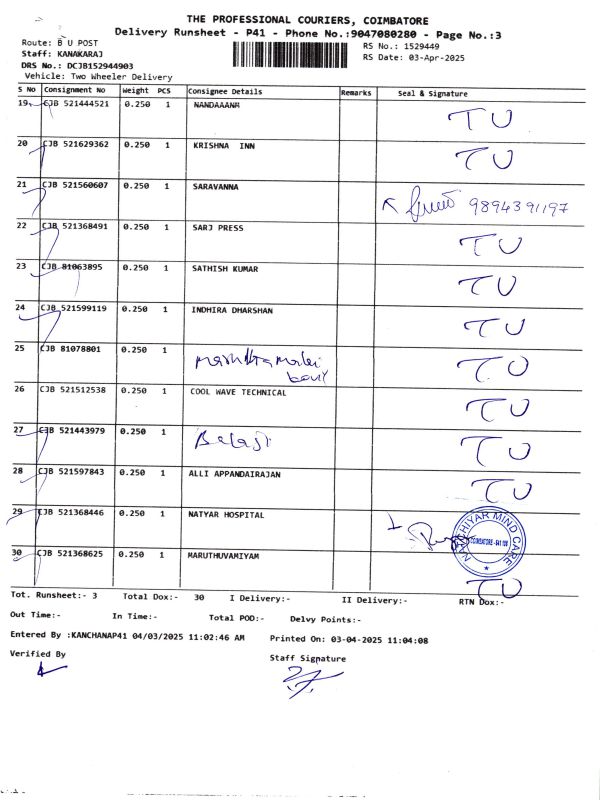 THE PROFESSIONAL COURIERS, COIMBATORE
Delivery Runsheet - P41 - Phone No.:9047080280 - Page No.:3
Route: B U POST
RS No.: 1529449
Staff: KANAKARAJ
RS Date: 03-Apr-2025
DRS No.: DCJB152944903
Vehicle: Two Wheeler Delivery
S No Consignment No Weight PCS Consignee Details Remarks Seal & Signature
19 CJB 521444521 0.250 1 NANDAAANR TU
20 CJB 521629362 0.250 1 KRISHNA INN TU
21 CJB 521560607 0.250 1 SARAVANNA 9894391197
22 CJB 521368491 0.250 1 SARJ PRESS TU
23 CJB 81063895 0.250 1 SATHISH KUMAR TU
24 CJB 521599119 0.250 1 INDHIRA DHARSHAN TU
25 CJB 81078801 0.250 1 TU
26 CJB 521512538 0.250 1 COOL WAVE TECHNICAL TU
27 CJB 521443979 0.250 1 Balaji TU
28 CJB 521597843 0.250 1 ALLI APPANDAIRAJAN TU
29 CJB 521368446 0.250 1 NATYAR HOSPITAL
MIND CARE
COIMBATORE
30 CJB 521368625 0.250 1 MARUTHUVAMIYAM TU
Tot. Runsheet:- 3 Total Dox:- 30 I Delivery:- II Delivery:- RTN Dox:-
Out Time:- In Time:- Total POD:- Delvy Points:-
Entered By :KANCHANAP41 04/03/2025 11:02:46 AM Printed On: 03-04-2025 11:04:08
Verified By
Staff Signature